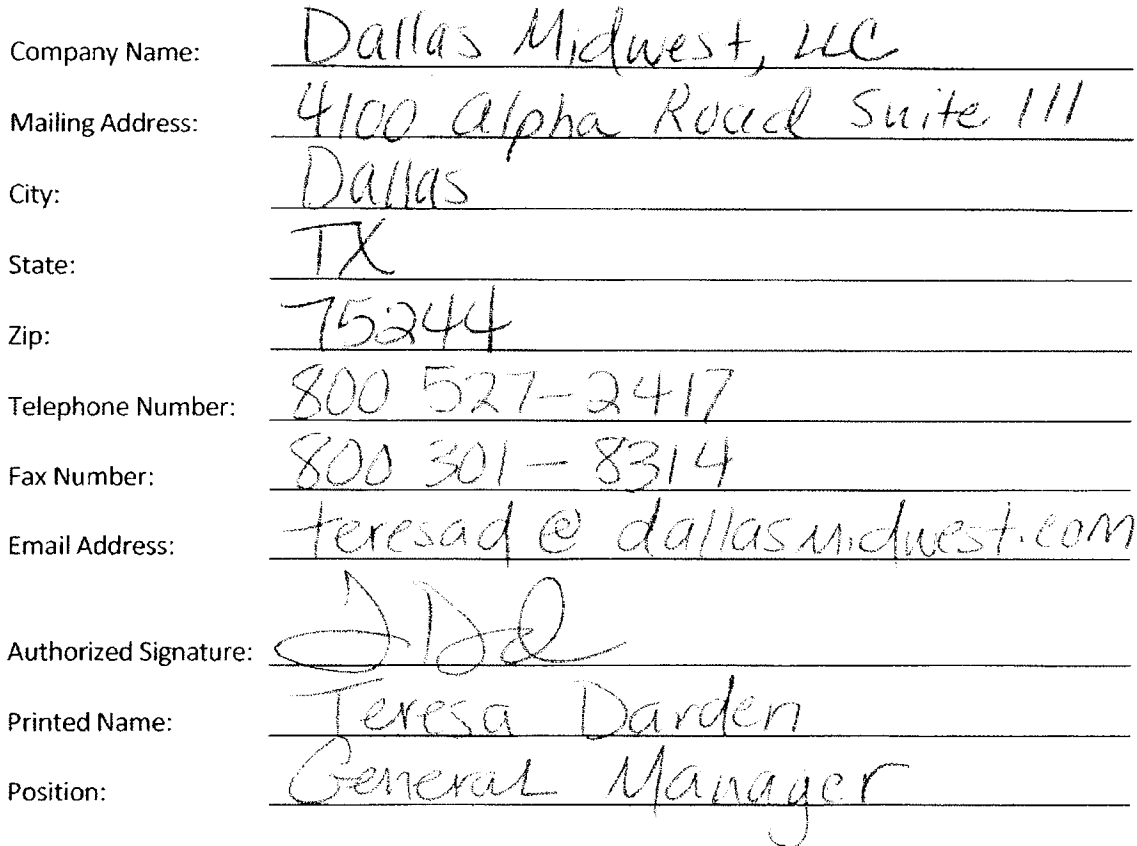 Company Name: Dallas Midwest, LLC
Mailing Address: 4100 Alpha Road Suite 111
City: Dallas
State: TX
Zip: 75244
Telephone Number: 800 527-2417
Fax Number: 800 301-8314
Email Address: teresad@dallasmidwest.com
Authorized Signature:
Printed Name: Teresa Darden
Position: General Manager